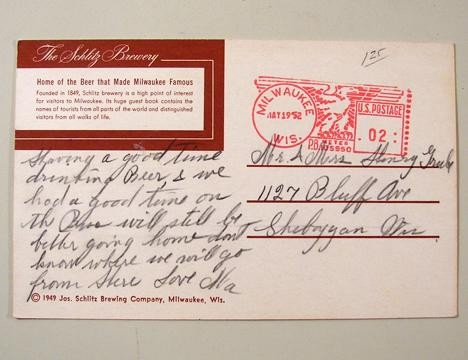 The Schlitz Brewery
Home of the Beer that Made Milwaukee Famous
Founded in 1849, Schlitz brewery is a high point of interest
for visitors to Milwaukee. Its huge guest book contains the
names of tourists from all parts of the world and distinguished
visitors from all walks of life.
Having a good time
drinking Beer & we
had a good time on
the Bus will still be
better going home dont
know where we will go
from here Love Ma
© 1949 Jos. Schlitz Brewing Company, Milwaukee, Wis.
125
MILWAUKEE
MAY 19 '52
WIS.
U.S. POSTAGE
02
P.B. METER
Mr & Mrs Henry
1127 Bluff Ave
Sheboygan Wis